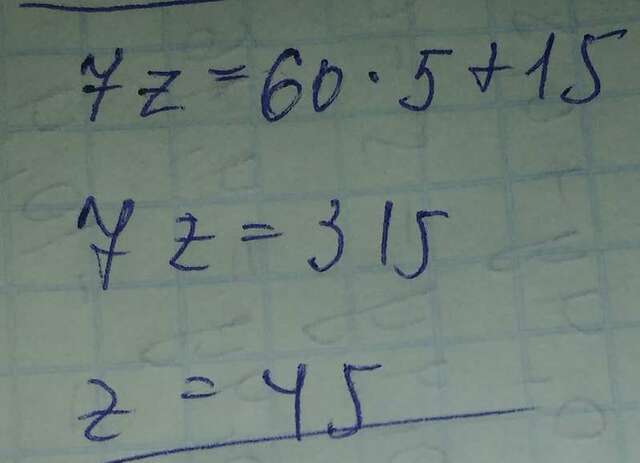 7z = 60 · 5 + 15
7z = 315
z = 45